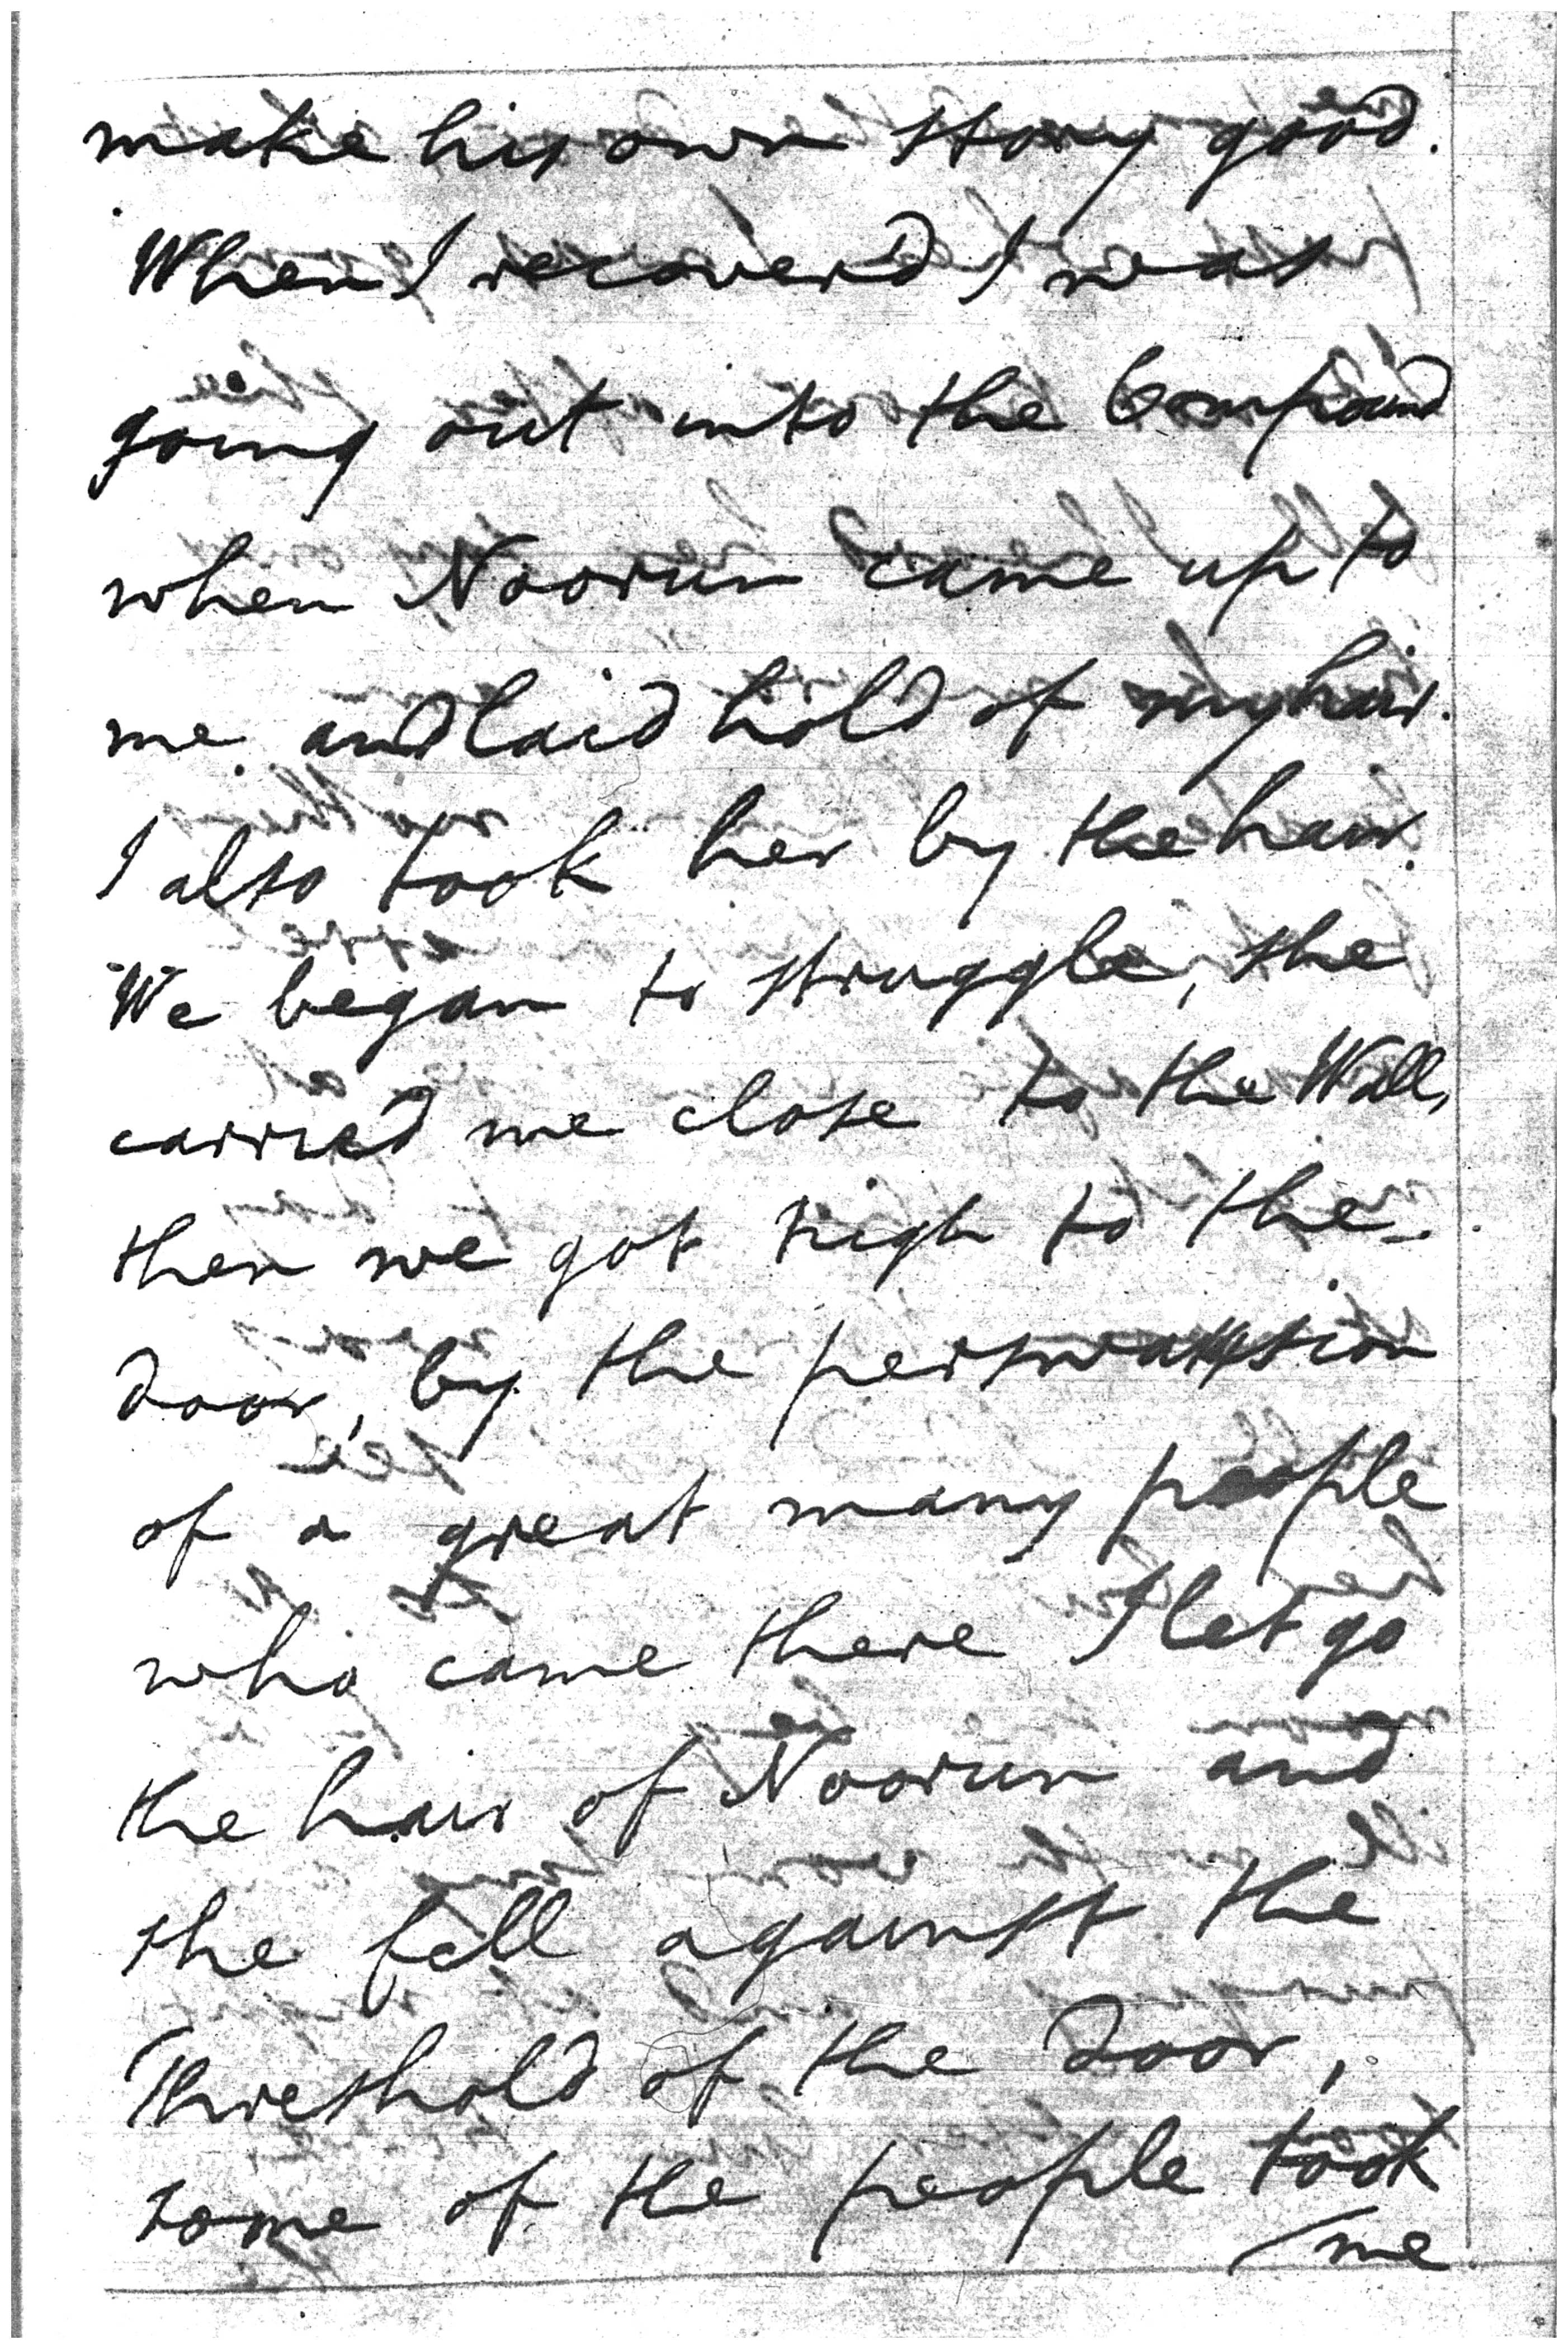 make his own story good.
When I recoverd I was
going out into the Compound
when Noorun came up to
me and laid hold of my hair.
I also took her by the hair.
We began to struggle, she
carried me close to the Wall,
then we got nigh to the
door, by the perswasion
of a great many people
who came there I let go
the hair of Noorun and
she fell against the
Threshold of the door,
some of the people took
me